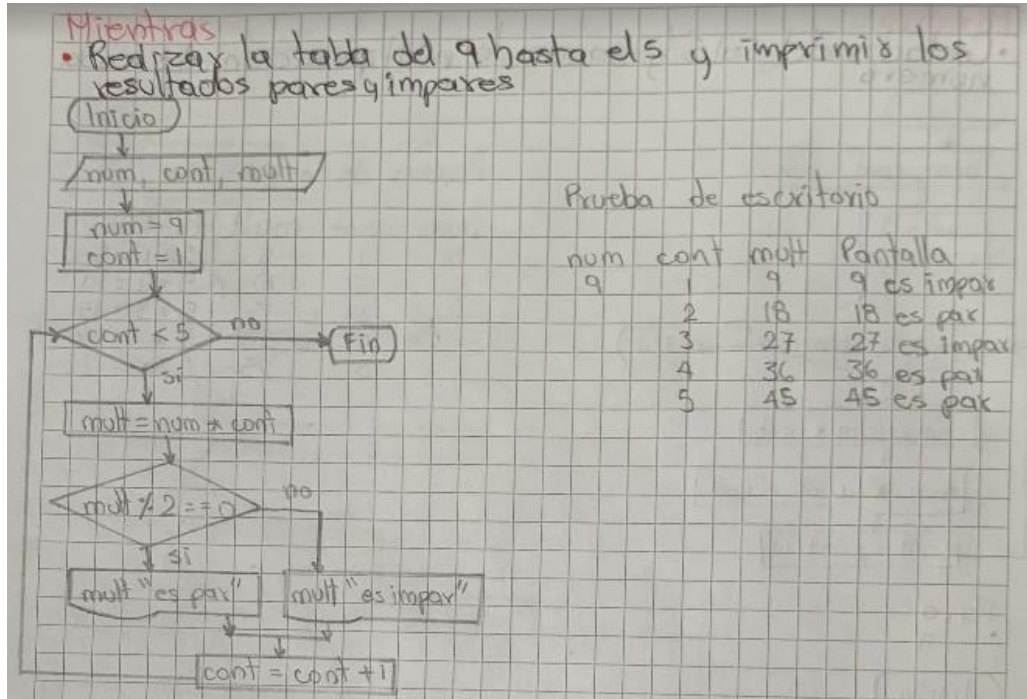 Mientras
• Realizar la tabla del 9 hasta el 5 y imprimir los
resultados pares y impares
Inicio
num, cont, mult
num = 9
cont = 1
cont < 5
no
Fin
si
mult = num * cont
mult % 2 == 0
no
si
mult "es par"
mult "es impar"
cont = cont + 1
Prueba de escritorio
num cont mult Pantalla
9 1 9 9 es impar
2 18 18 es par
3 27 27 es impar
4 36 36 es par
5 45 45 es par